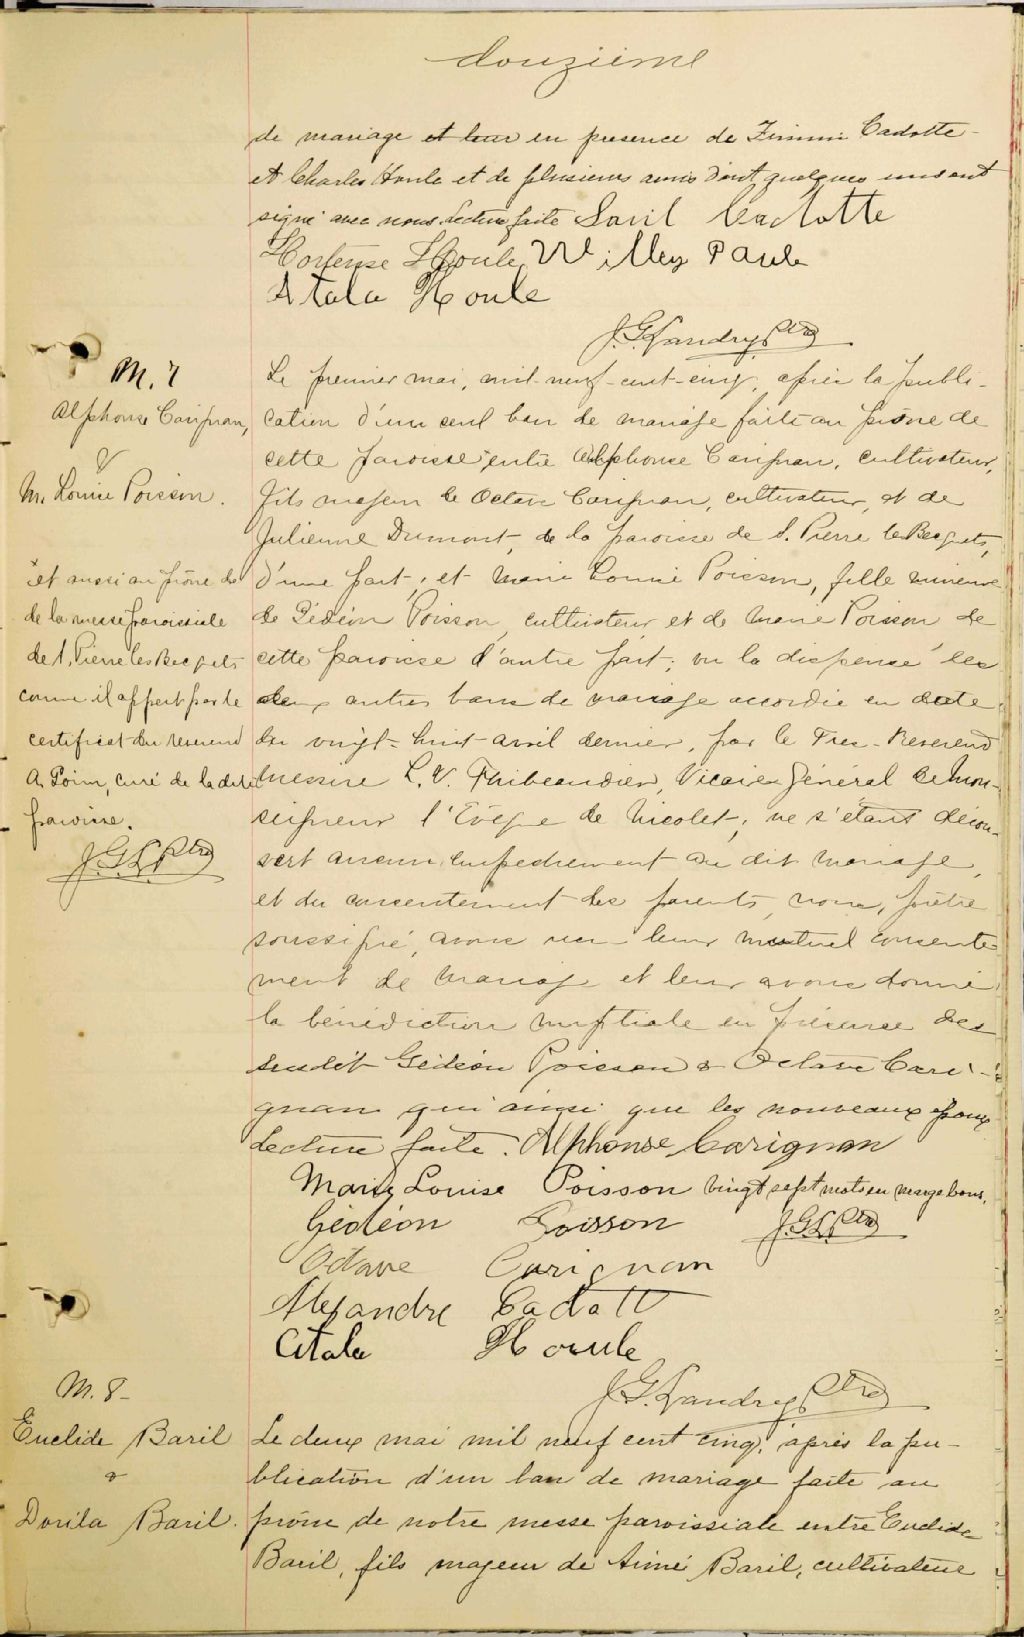 douzième
de mariage et leur en presence de Cadotte
et Charles Houle et de plusieurs amis dont quelques uns ont
signé avec nous. Lecture faite Cadotte
Hortense Houle Willey Paule
Atala Houle
J.G. Landry Ptre
M. 7
Alphonse Carignan,
&
M. Louise Poisson.
Le premier mai, mil-neuf-cent-cinq, après la publi-
cation d'un seul ban de mariage faite au prône de
cette paroisse entre Alphonse Carignan, cultivateur,
fils majeur de Octave Carignan, cultivateur, et de
Julienne Dumont, de la paroisse de S. Pierre les Becquets,
d'une part, et Marie Louise Poisson, fille mineure
de Gédéon Poisson, cultivateur et de Marie Poisson de
cette paroisse d'autre part; vu la dispense les
deux autres bans de mariage accordée en date
du vingt-huit avril dernier, par le Très-Reverend
Messire L. V. Thibeaudier, Vicaire Général de Mon-
seigneur l'Evêque de Nicolet; ne s'étant décou-
vert aucun empechement au dit mariage,
et du consentement des parents, nous, prêtre
soussigné, avons reçu leur mutuel consente-
ment de mariage et leur avons donné
la bénédiction nuptiale en présence des
susdit Gédéon Poisson & Octave Cari-
gnan qui ainsi que les nouveaux époux
Lecture faite. Alphonse Carignan
Marie Louise Poisson vingt sept mots en marge bons.
Gédéon Poisson J.G.L. Ptre
Octave Carignan
Alexandre Cadott
Atala Houle
J.G. Landry Ptre
et aussi au prône de
de la messe paroissiale
de S. Pierre les Becquets
comme il appert par le
certificat du reverend
curé de la dite
paroisse.
J.G.L. Ptre
M. 8-
Euclide Baril
&
Dorila Baril.
Le deux mai mil neuf cent cinq, après la pu-
blication d'un ban de mariage faite au
prône de notre messe paroissiale entre Euclide
Baril, fils majeur de Aimé Baril, cultivateur